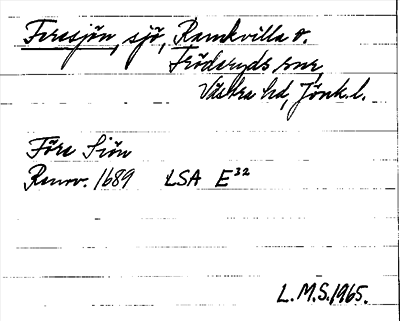 Furusjön, sjö, Ramkvilla o.
Fröderyds snr,
Västra hd, Jönk. l.
Före Siön
Renov. 1689 LSA E³²
L.M.S. 1965.